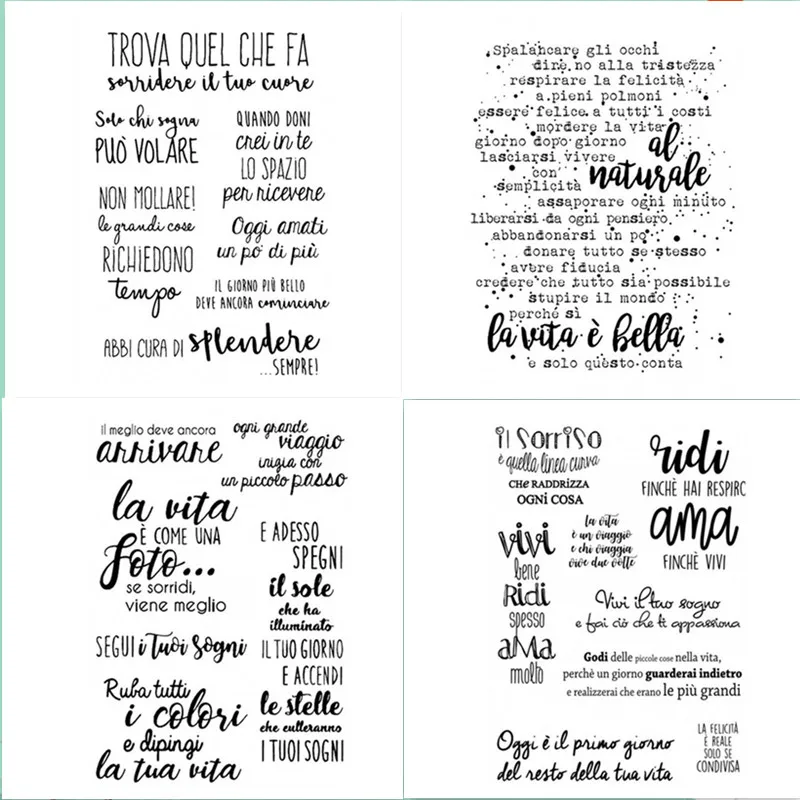 TROVA QUEL CHE FA
sorridere il tuo cuore
Solo chi sogna
PUÒ VOLARE
NON MOLLARE!
le grandi cose
RICHIEDONO
tempo
QUANDO DONI
crei in te
LO SPAZIO
per ricevere
Oggi amati
un po' di più
IL GIORNO PIÙ BELLO
DEVE ANCORA cominciare
ABBI CURA DI splendere
...SEMPRE!
Spalancare gli occhi
dire no alla tristezza
respirare la felicità
a pieni polmoni
essere felice a tutti i costi
mordere la vita
giorno dopo giorno
lasciarsi vivere
con
semplicità
al
naturale
assaporare ogni minuto
liberarsi da ogni pensiero
abbandonarsi un po'
donare tutto se stesso
avere fiducia
credere che tutto sia possibile
stupire il mondo
perché sì
la vita è bella
e solo questo conta
il meglio deve ancora
arrivare
la vita
È COME UNA
foto...
se sorridi,
viene meglio
SEGUI i Tuoi Sogni
Ruba tutti
i colori
e dipingi
la tua vita
ogni grande
viaggio
inizia con
un piccolo passo
E ADESSO
SPEGNI
il sole
che ha
illuminato
IL TUO GIORNO
E ACCENDI
le stelle
che culleranno
I TUOI SOGNI
il sorriso
è quella linea curva
CHE RADDRIZZA
OGNI COSA
ridi
FINCHÈ HAI RESPIRO
ama
FINCHÈ VIVI
vivi
bene
Ridi
spesso
aMa
molto
la vita
è un viaggio
e chi viaggia
vive due volte
Vivi il tuo sogno
e fai ciò che ti appassiona
Godi delle piccole cose nella vita,
perchè un giorno guarderai indietro
e realizzerai che erano le più grandi
Oggi è il primo giorno
del resto della tua vita
LA FELICITÀ
È REALE
SOLO SE
CONDIVISA